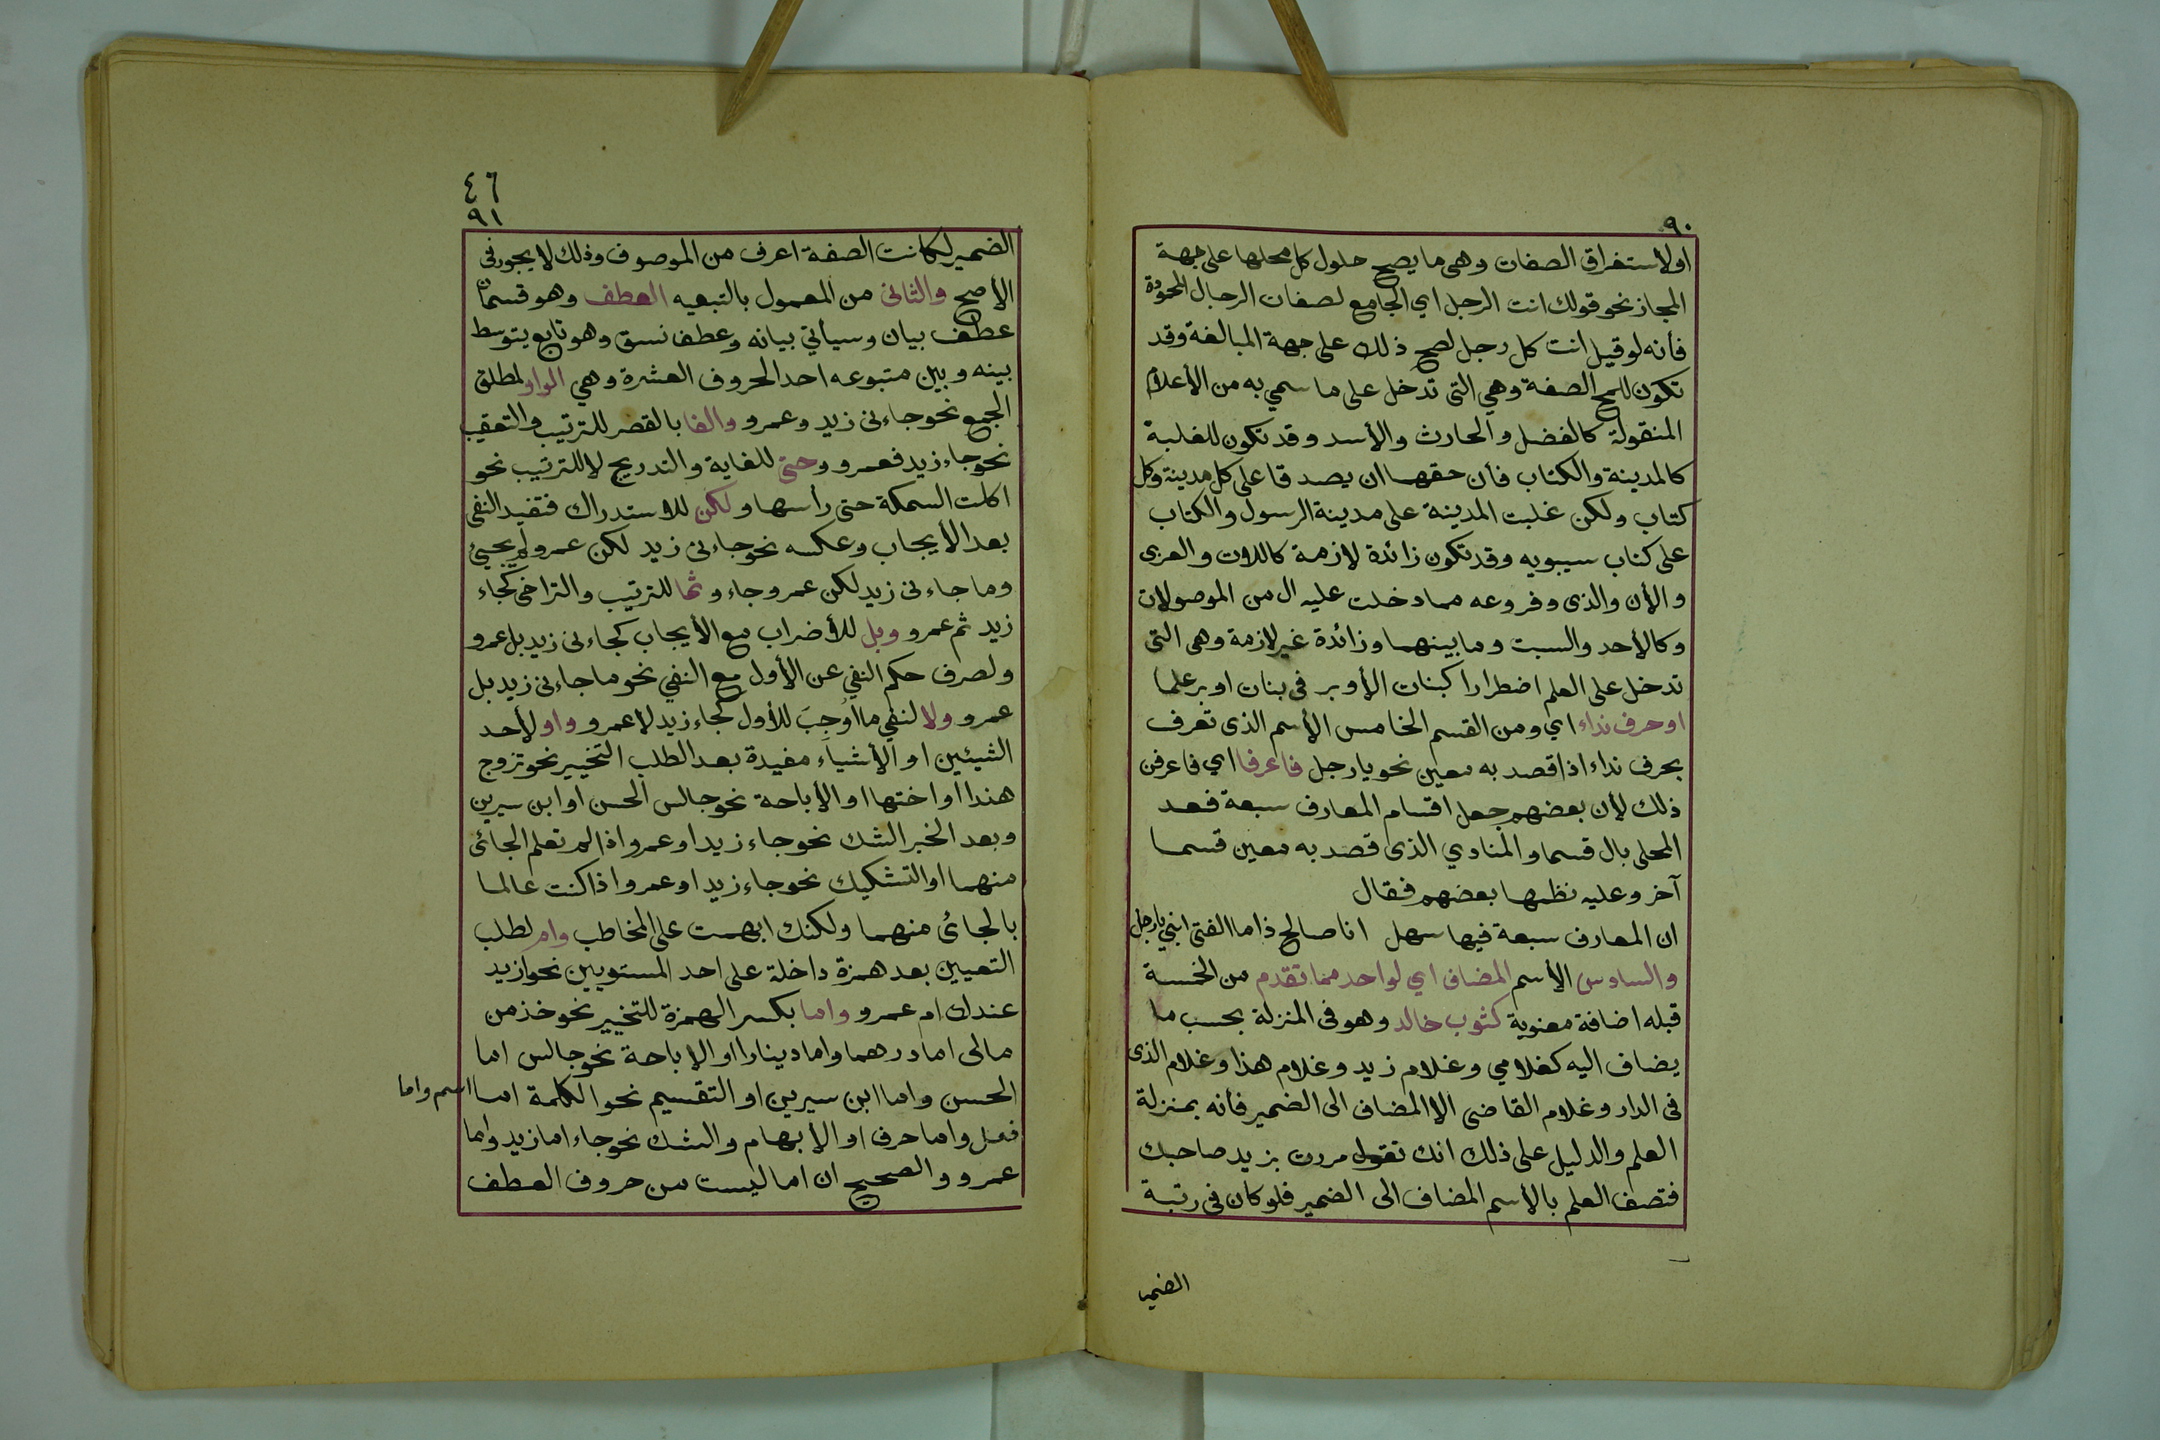 ٩٠
او لأستغراق الصفات وهي ما يصح حلول كل محلها على جهة
المجاز نحو قولك انت الرجل اي الجامع لصفات الرجال المحمودة
فأنه لو قيل انت كل رجل لصح ذلك على جهة المبالغة وقد
تكون للمح الصفة وهي التي تدخل على ما سمي به من الأعلام
المنقولة كالفضل والحارث والأسد وقد تكون للغلبة
كالمدينة والكتاب فأن حقهما ان يصدقا على كل مدينة وكل
كتاب ولكن غلبت المدينة على مدينة الرسول والكتاب
على كتاب سيبويه وقد تكون زائدة لازمة كاللات والعزى
والأن والذى وفروعه مما دخلت عليه ال من الموصولات
وكالأحد والسبت وما بينهما وزائدة غير لازمة وهى التى
تدخل على العلم اضطرارا كبنات الأوبر فى بنات اوبر علما
او حرف نداء اي ومن القسم الخامس الأسم الذى تعرف
بحرف نداء اذا قصد به معين نحو يا رجل فاعرفا اي فاعرفن
ذلك لأن بعضهم جعل اقسام المعارف سبعة فعد
المحلى بال قسما والمنادي الذى قصد به معين قسما
آخر وعليه نظمها بعضهم فقال
ان المعارف سبعة فيها سهل انا صالح ذا ما الفتى ابني يا رجل
والسادس الأسم المضاف اي لواحد مما تقدم من الخمسة
قبله اضافة معنوية كثوب خالد وهو فى المنزلة بحسب ما
يضاف اليه كغلامي وغلام زيد وغلام هذا وغلام الذى
فى الدار وغلام القاضى الا المضاف الى الضمير فأنه بمنزلة
العلم والدليل على ذلك انك تقول مررت بزيد صاحبك
فتصف العلم بالأسم المضاف الى الضمير فلو كان فى رتبة
الضمير
٤٦
٩١
الضمير لكانت الصفة اعرف من الموصوف وذلك لا يجوز فى
الأصح والثانى من المعمول بالتبعيه العطف وهو قسمان
عطف بيان وسيأتي بيانه وعطف نسق وهو تابع يتوسط
بينه وبين متبوعه احد الحروف العشرة وهي الواو لمطلق
الجمع نحو جاءنى زيد وعمرو والفا بالقصر للترتيب والتعقيب
نحو جاء زيد فعمرو وحتى للغاية والتدريج لا للترتيب نحو
اكلت السمكة حتى رأسها ولكن للاستدراك فتفيد النفى
بعد الأيجاب وعكسه نحو جاءنى زيد لكن عمرو لم يجيئ
وما جاءنى زيد لكن عمرو جاء وثما للترتيب والتراخي كجاء
زيد ثم عمرو وبل للأضراب مع الأيجاب كجاءنى زيد بل عمرو
ولصرف حكم النفي عن الأول مع النفي نحو ما جاءنى زيد بل
عمرو ولا لنفي ما اوجب للأول كجاء زيد لا عمرو واو لأحد
الشيئين او الأشياء مفيدة بعد الطلب التخيير نحو تزوج
هندا او اختها او الأباحة نحو جالس الحسن او ابن سيرين
وبعد الخبر الشك نحو جاء زيد او عمرو اذا لم تعلم الجائى
منهما او التشكيك نحو جاء زيد او عمرو اذا كنت عالما
بالجائى منهما ولكنك ابهمت على المخاطب وام لطلب
التعيين بعد همزة داخلة على احد المستويين نحو ازيد
عندك ام عمرو واما بكسر الهمزة للتخيير نحو خذ من
مالى اما درهما واما دينارا او الإباحة نحو جالس اما
الحسن واما ابن سيرين او التقسيم نحو الكلمة اما اسم واما
فعل واما حرف او الأبهام والشك نحو جاء اما زيد واما
عمرو والصحيح ان اما ليست من حروف العطف